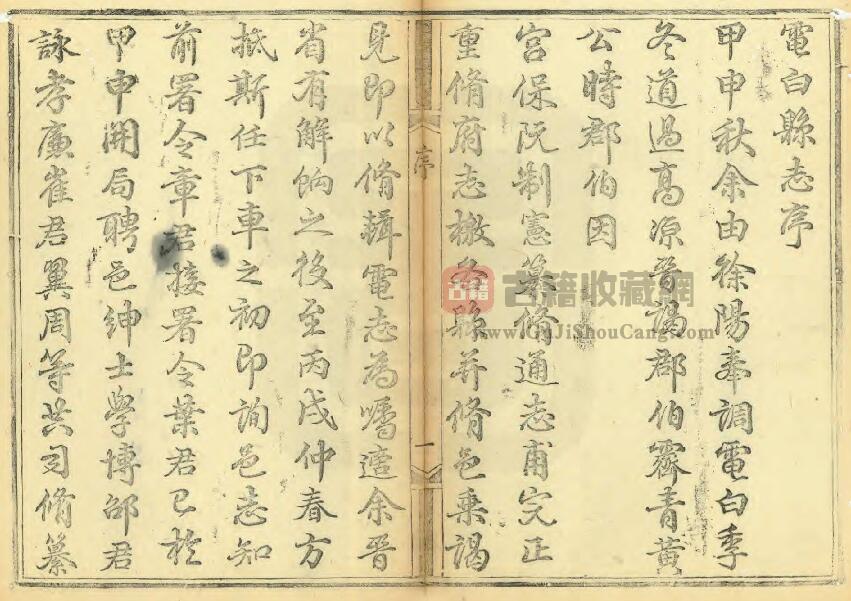 電白縣志序
甲申秋余由徐陽奉調電白季
冬道過高凉晉謁郡伯霽青黃
公時郡伯因
宮保阮制憲纂修通志甫完正
重脩府志檄各縣并脩邑乘謁
序
一
見即以脩輯電志為囑適余晉
省有解餉之役至丙戌仲春方
抵斯任下車之初即詢邑志知
前署令章君接署令葉君已於
甲申開局聘邑紳士學博邵君
詠孝廉崔君翼周等共司脩纂
古籍
古籍收藏網
www.GuJiShouCang.com